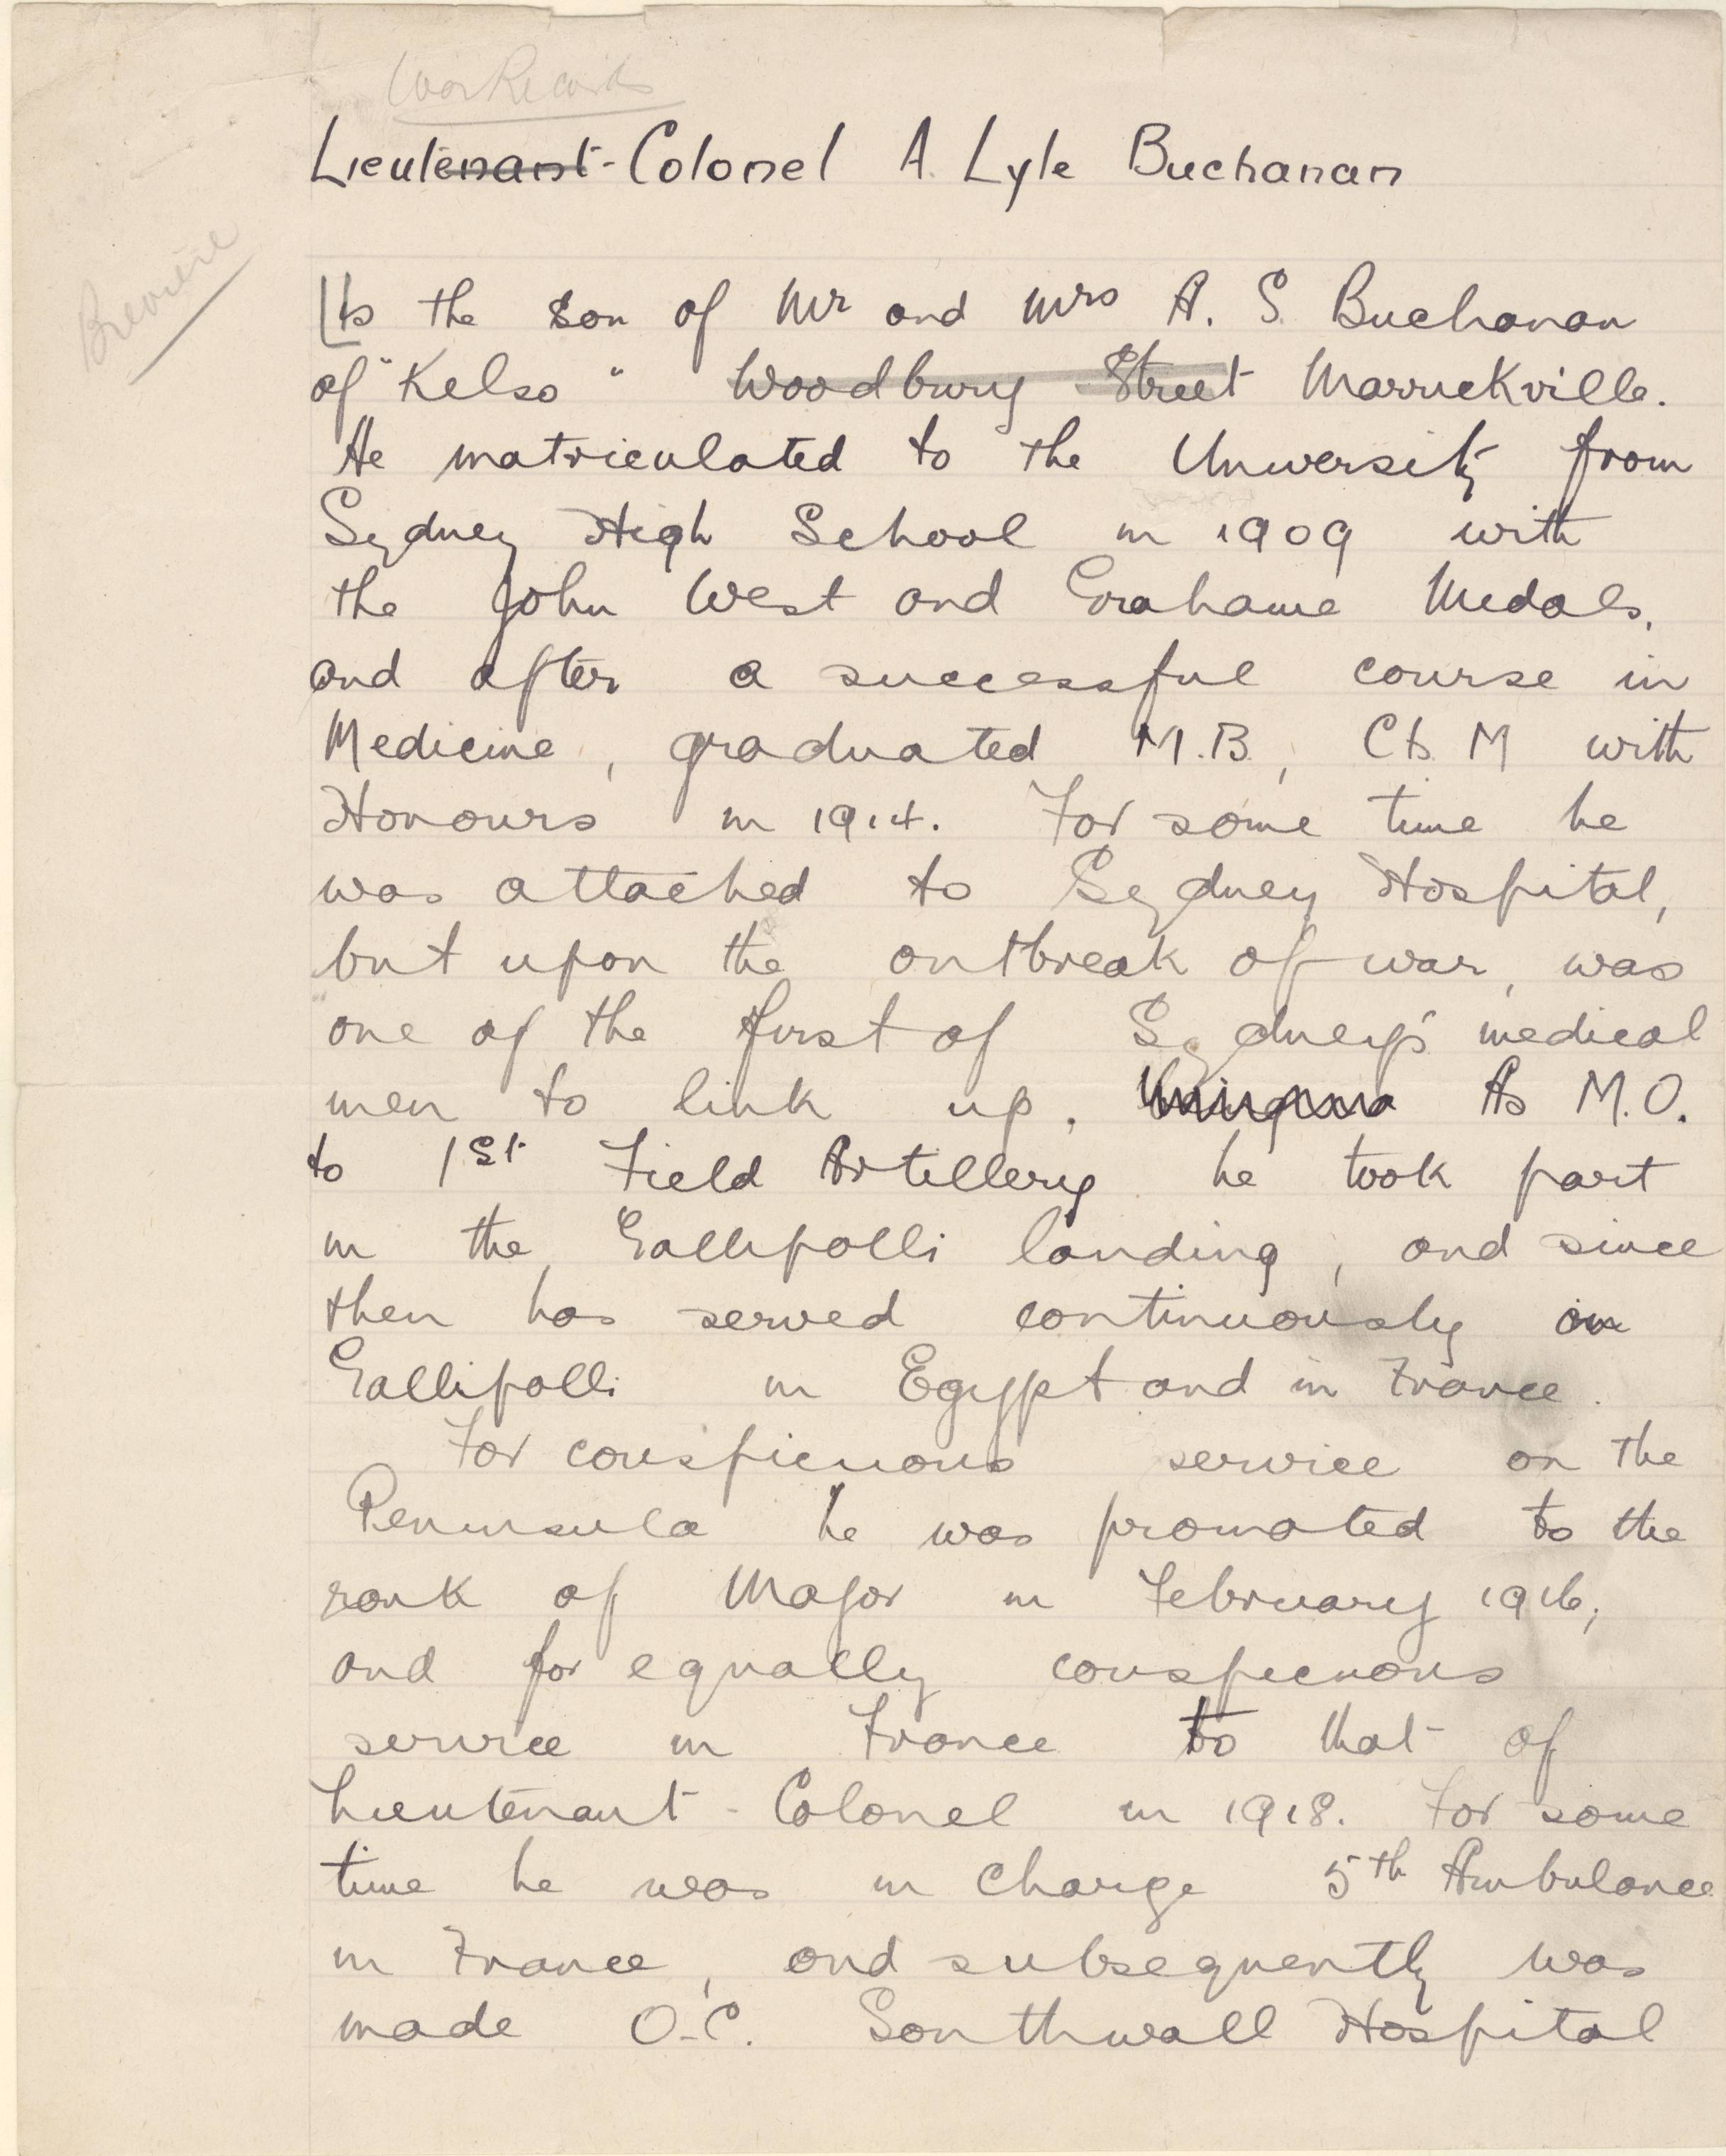 War Records
Lieutenant-Colonel A. Lyle Buchanan
Is the son of Mr and Mrs A. S. Buchanan
of "Kelso" Woodbury Street Marrickville.
He matriculated to the University from
Sydney High School in 1909 with
the John West and Grahame Medals,
and after a successful course in
Medicine, graduated M.B., Ch. M with
Honours in 1914. For some time he
was attached to Sydney Hospital,
but upon the outbreak of war, was
one of the first of Sydney's medical
men to link up. As M.O.
to 1st Field Artillery he took part
in the Gallipolli landing, and since
then has served continuously on
Gallipolli in Egypt and in France.
For conspicuous service on the
Peninsula he was promoted to the
rank of Major in February 1916,
and for equally conspicuous
service in France to that of
Lieutenant-Colonel in 1918. For some
time he was in charge 5th Ambulance
in France, and subsequently was
made O.C. Southwall Hospital